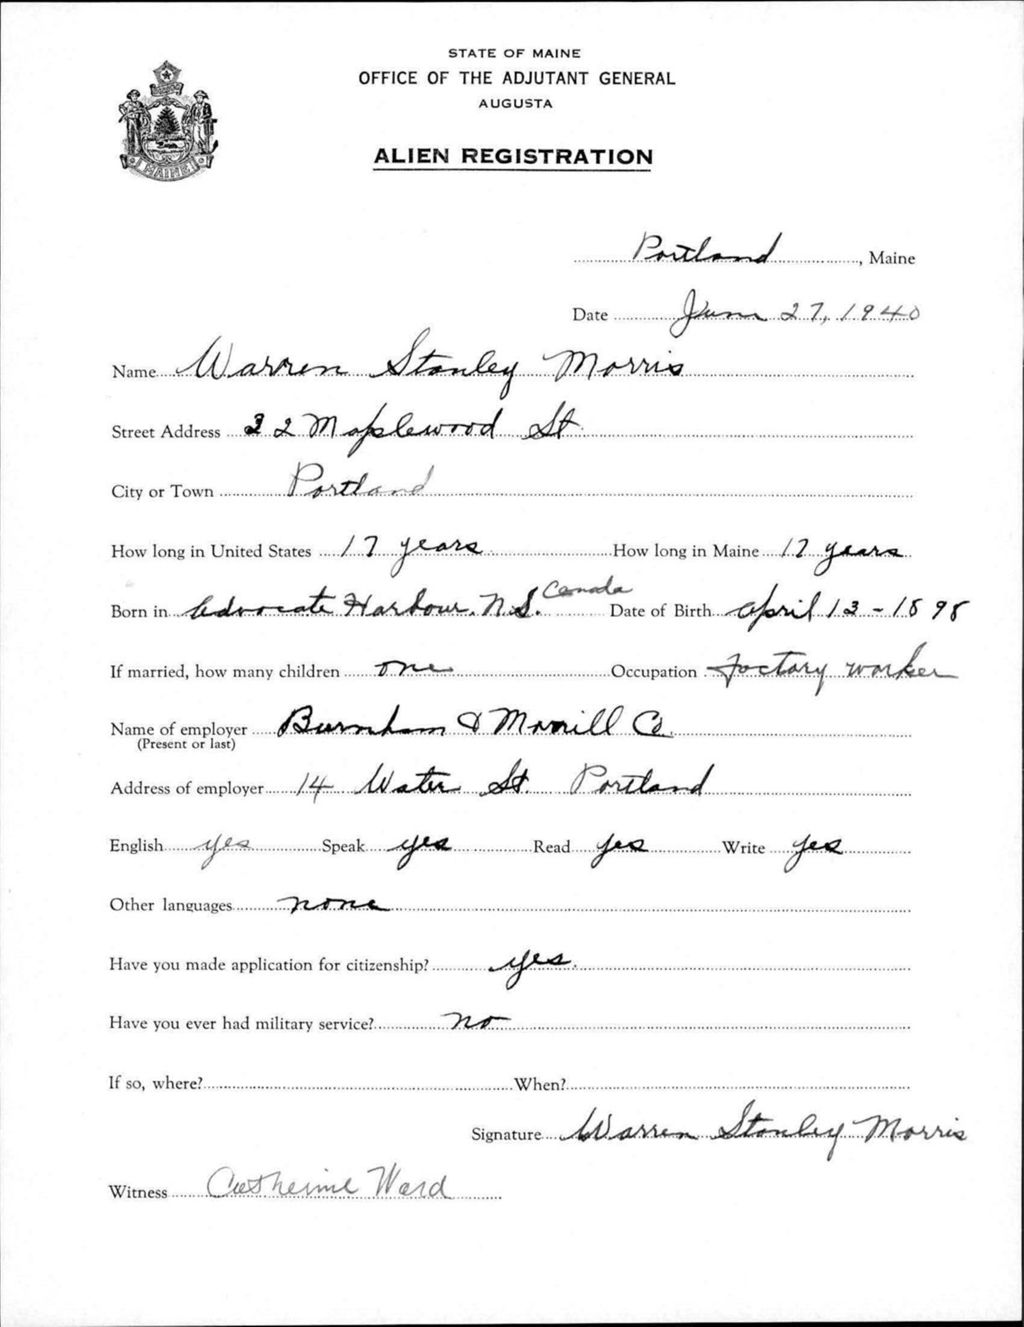 STATE OF MAINE
OFFICE OF THE ADJUTANT GENERAL
AUGUSTA
ALIEN REGISTRATION
MAINE
Portland, Maine
Date June 27, 1940
Name Warren Stanley Morris
Street Address 32 Maplewood St.
City or Town Portland
How long in United States 17 years How long in Maine 17 years
Born in Advocate Harbour, N.S. Canada Date of Birth April 13 - 1898
If married, how many children one Occupation Factory worker
Name of employer Burnham & Morrill Co.
(Present or last)
Address of employer 14 Water St. Portland
English yes Speak yes Read yes Write yes
Other languages none
Have you made application for citizenship? yes.
Have you ever had military service? no
If so, where? When?
Signature Warren Stanley Morris
Witness Catherine Ward